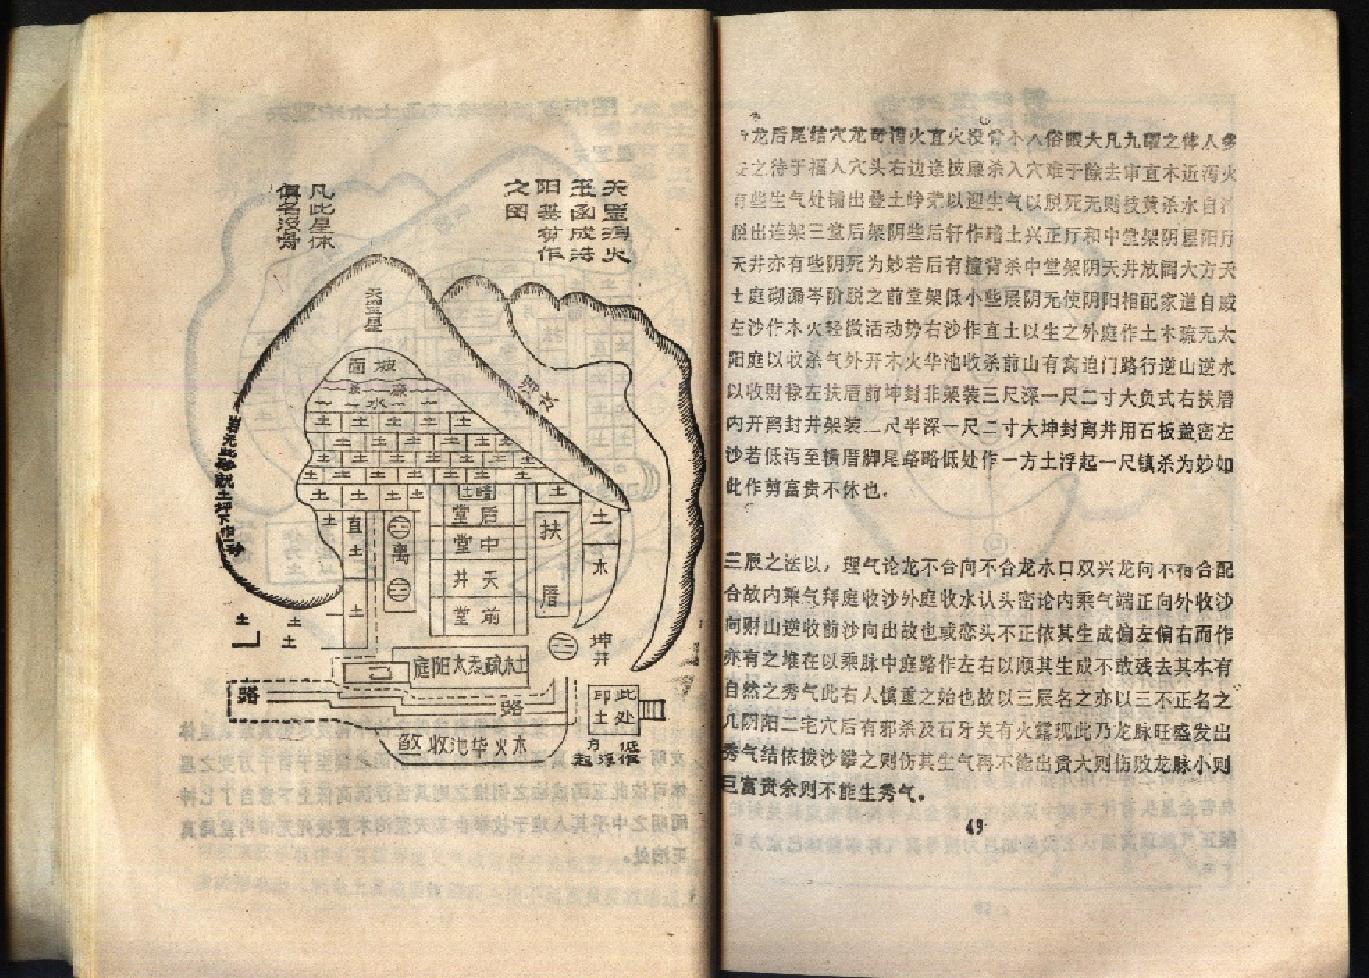 凡此星体
俱名没骨
阳基剪作
之图
天罡星
面坡
水
土 土 土 土 土
直土
土
离
暗土
后堂
中堂
天井
前堂
扶厝
土
木
坤井
土
土
土
土木疏无太阳庭
路
路
此处
印土
低作
方土浮起
木火华池收煞
龙后尾结穴龙奇湾火直火没骨小人俗眼大凡九曜之体人多
之待于福人穴头右边逢披廉杀入穴难于除去审直木近泻火
有些生气处铺出叠土峥光以迎生气以脱死无则技黄杀水自
脱出连架三堂后架阴些后轩作暗土兴正厅和中堂架阴屋阳厅
天井亦有些阴死为妙若后有撞背杀中堂架阴天井放阔大方天
土庭砌漏岑阶脱之前堂架低小些展阴无使阴阳相配家道自成
左沙作木火轻微活动势右沙作直土以生之外庭作土木疏无太
阳庭以收杀气外开木火华池收杀前山有高迫门路行逆山逆水
以收财禄左扶厝前坤封非架装三尺深一尺二寸大负式右扶厝
内开离封井架装二尺半深一尺二寸大坤封离井用石板盖密左
沙若低泻至横厝脚尾路略低处作一方土浮起一尺镇杀为妙如
此作剪富贵不休也.
三辰之法以，理气论龙不合向不合龙水口双兴龙向不相合配
合故内乘气拜庭收沙外庭收水认头密论内乘气端正向外收沙
向财山逆收前沙向出故也或恋头不正依其生成偏左偏右而作
亦有之堆在以乘脉中庭路作左右以顺其生成不敢残去其本有
自然之秀气此右人慎重之始也故以三辰名之亦以三不正名之
几阴阳二宅穴后有邪杀及石牙关有火露现此乃龙脉旺盛发出
秀气结依拨沙攀之则伤其生气再不能出贵大则伤败龙脉小则
巨富贵余则不能生秀气.
49